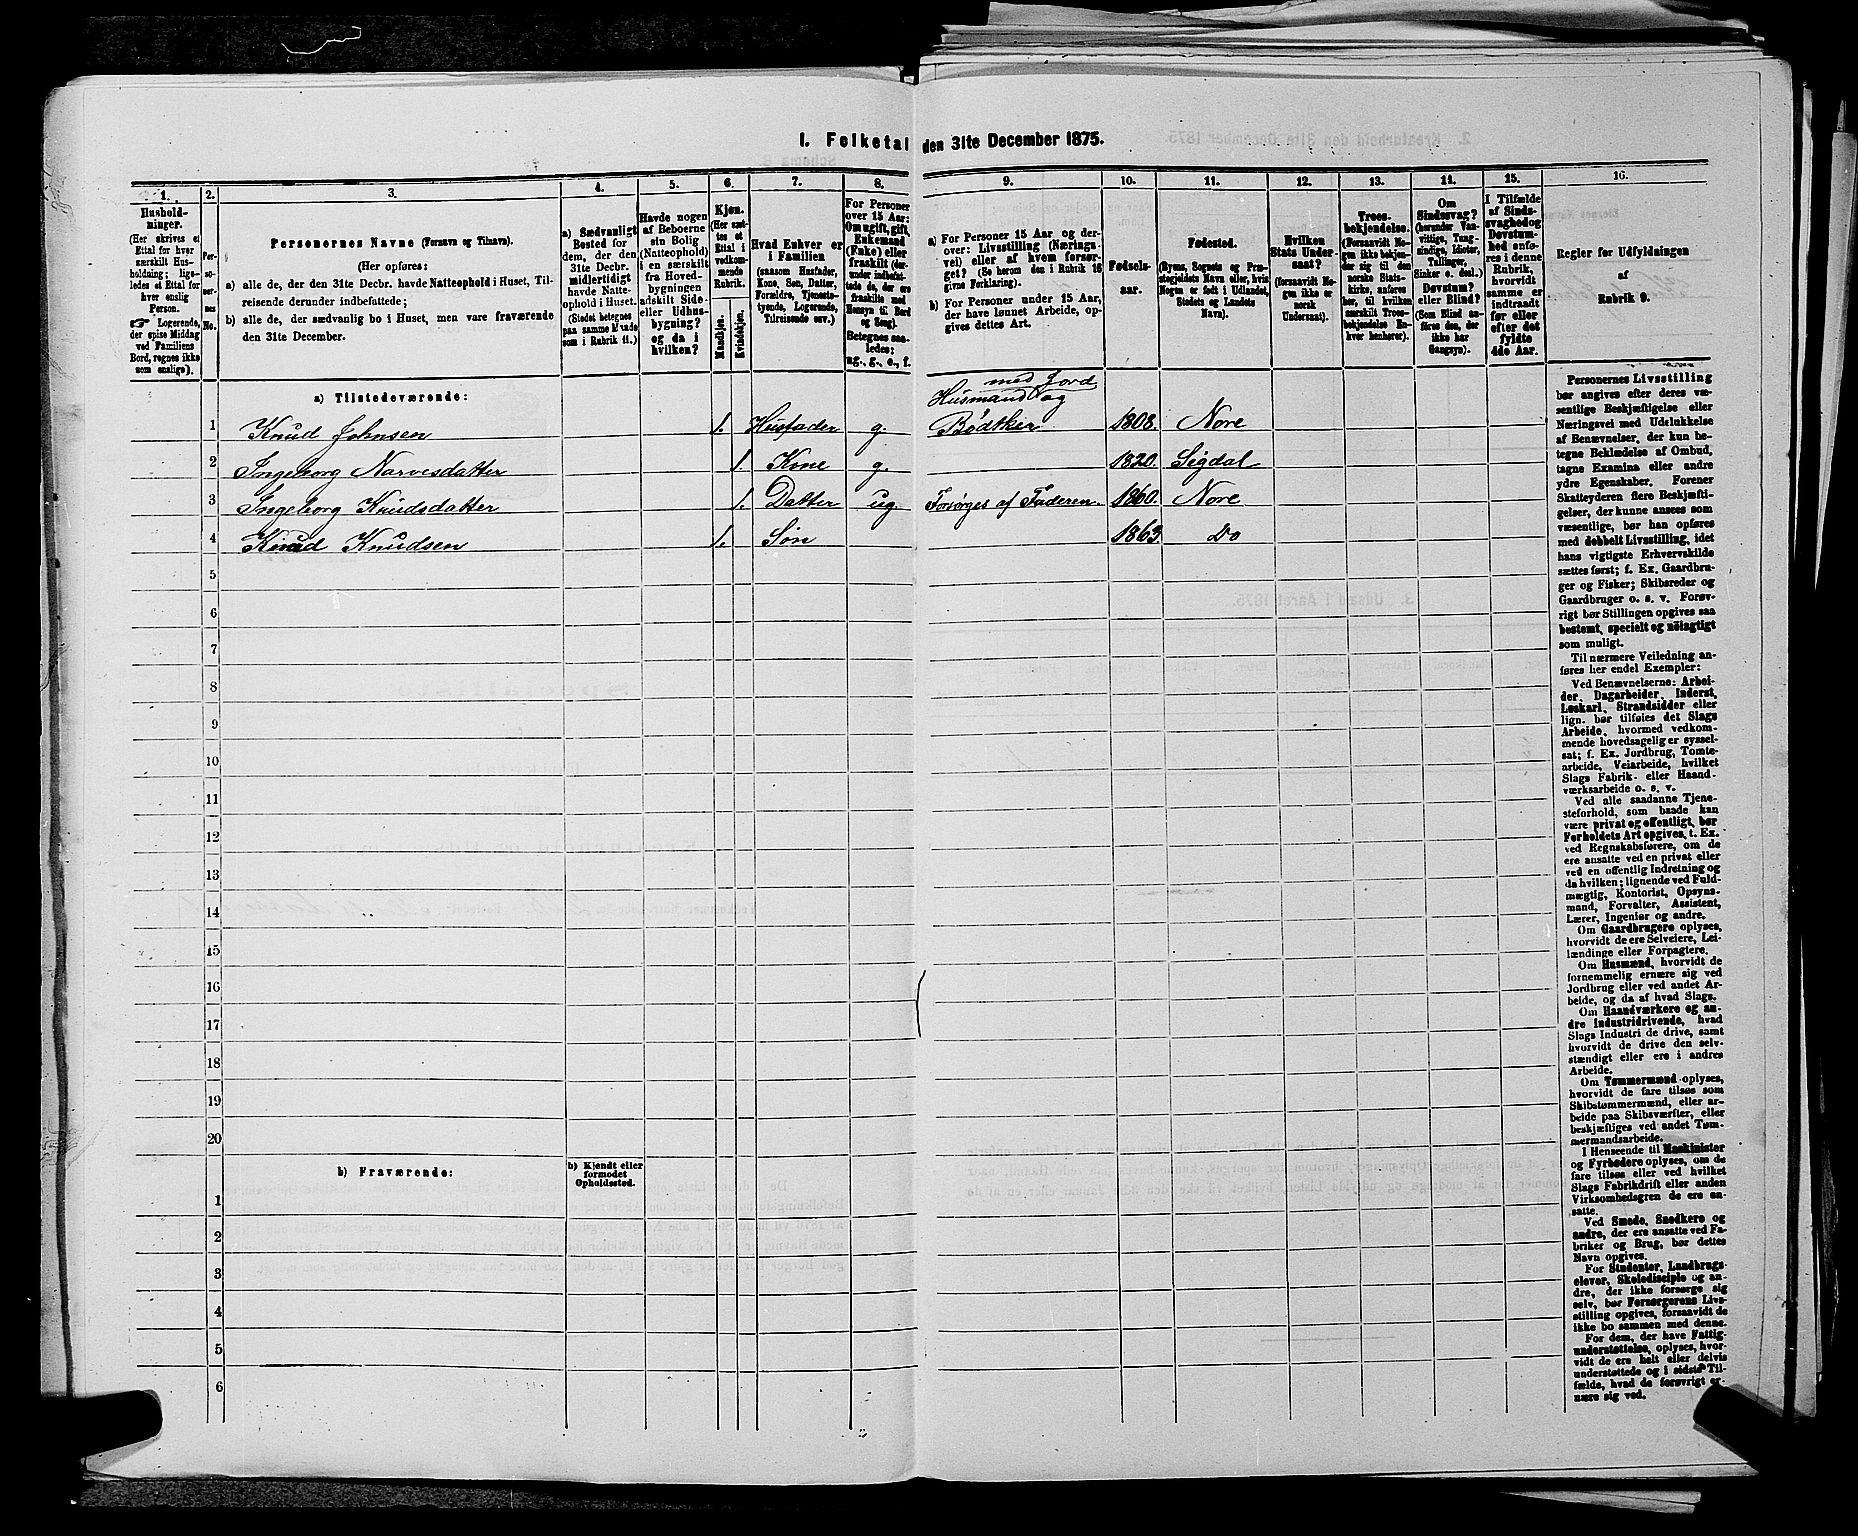 I. Folketal den 31te December 1875.
1. 2. 3. 4. 5. 6. 7. 8. 9. 10. 11. 12. 13. 14. 15. 16.
Hushold-
ninger.
(Her skrives et
Ettal for hver
særskilt Hus-
holdning; lige-
ledes et Ettal for
hver enslig
Person.
☞ Logerende,
der spise Middag
ved Familiens
Bord, regnes ikke
som enslige).
Per-
so-
ner-
nes
No.
Personernes Navne (Fornavn og Tilnavn).
(Her opføres:
a) alle de, der den 31te Decbr. havde Natteophold i Huset, Til-
reisende derunder indbefattede;
b) alle de, der sædvanlig bo i Huset, men vare fraværende
den 31te December.
a) Sædvanligt
Bosted for
dem, der den
31te Decbr.
havde Natte-
midlertidigt
ophold i Huset.
(Stedet betegnes
paa samme Maade
som i Rubrik 11.)
Havde nogen
af Beboerne
sin Bolig
(Natteophold)
i en særskilt
fra Hoved-
bygningen
adskilt Side-
eller Udhus-
bygning?
og da i
hvilken?
Kjøn.
(Her sæt-
tes et
Ettal i
vedkom-
mende
Rubrik.
Mandkjøn.
Kvindekjøn.
Hvad Enhver er
i Familien
(saasom Husfader,
Kone, Søn, Datter,
Forældre, Tjeneste-
tyende, Logerende,
Tilreisende osv.)
For Personer
over 15 Aar:
Om ugift, gift,
Enkemand
(Enke) eller
fraskilt (der-
under indbefat-
tede de, der ere
fraskilte med
Hensyn til Bord
og Seng).
Betegnes saa-
ledes:
ug., g., e., f.
a) For Personer 15 Aar og der-
over: Livsstilling (Nærings-
vei) eller af hvem forsør-
get? (Se herom den i Rubrik 16
givne Forklaring).
b) For Personer under 15 Aar,
der have lønnet Arbeide, op-
gives dettes Art.
Fødsels-
aar.
Fødested.
(Byens, Sognets og Præ-
stegjeldets Navn eller, hvis
Nogen er født i Udlandet,
Stedets og Landets
Navn).
Hvilken
Stats Under-
saat?
(forsaavidt No-
gen ikke er
norsk
Undersaat).
Troes-
bekjendelse.
(Forsaavidt No-
gen ikke bekjen-
der sig til den
norske Stats-
kirke, anføres
her, til hvilken
særskilt Troes-
bekjendelse En-
hver henhører).
Om
Sindssvag?
(herunder Van-
vittige, Tung-
sindige, Idioter,
Tullinger,
Sinker o. desl.)
Døvstum?
eller Blind?
(Som Blind an-
føres den, der
ikke har
Gangsyn).
I Tilfælde
af Sinds-
svaghed og
Døvstum-
hed anfø-
res i denne
Rubrik,
hvorvidt
samme er
indtraadt
før eller
efter det
fyldte
4de Aar.
Regler for Udfyldningen
af
Rubrik 9.
a) Tilstedeværende:
1 Knud Johnsen 1. Husfader g. Husmand med Jord og Bødtker 1808. Nore
2 Ingeborg Narvesdatter 1. Kone g. 1820. Sigdal
3 Ingeborg Knudsdatter 1. Datter ug. Forsørges af Faderen. 1860. Nore
4 Knud Knudsen 1. Søn 1863. Do
5
6
7
8
9
10
11
12
13
14
15
16
17
18
19
20
b) Fraværende:
b) Kjendt eller
formodet
Opholdssted.
1
2
3
4
5
6
Personernes Livsstilling
bør angives efter deres væ-
sentlige Beskjæftigelse eller
Næringsvei med Udelukkelse
af Benævnelser, der kun be-
tegne Beklædelse af Ombud,
tagne Examina eller andre
ydre Egenskaber. Forener
Skatteyderen flere Beskjæfti-
gelser, der kunne ansees som
væsentlige, bør han opføres
med dobbelt Livsstilling, idet
hans vigtigste Erhvervskilde
sættes først; f. Ex. Gaardbru-
ger og Fisker; Skibsreder og
Gaardbruger o. s. v. Forøv-
rigt bør Stillingen opgives saa
bestemt, specielt og nöiagtigt
som muligt.
Til nærmere Veiledning an-
føres her endel Exempler:
Ved Benævnelserne: Arbei-
der, Dagarbeider, Inderst,
Løskarl, Strandsidder eller
lign. bør tilføies det Slags
Arbeide, hvormed vedkom-
mende hovedsagelig er syssel-
sat; f. Ex. Jordbrug, Tomte-
arbeide, Veiarbeide, hvilket
Slags Fabrik- eller Haand-
værksarbeide o. s. v.
Ved alle saadanne Tjene-
steforhold, som baade kan
være privat og offentligt, bør
Forholdets Art opgives, t. Ex.
ved Regnskabsførere, om de
ere ansatte ved en privat eller
ved en offentlig Indretning og
da hvilken; lignende ved Fuld-
mægtig, Kontorist, Opsyns-
mand, Forvalter, Assistent,
Lærer, Ingeniør og andre.
Om Gaardbrugere oplyses,
hvorvidt de ere Selveiere, Lei-
lændinge eller Forpagtere.
Om Husmænd, hvorvidt de
fornemmelig ernære sig ved
Jordbrug eller ved andet Ar-
beide, og da af hvad Slags.
Om Haandværkere og an-
dre Industridrivende, hvad
Slags Industri de drive, samt
hvorvidt de drive den selv-
stændigt eller ere i andres
Arbeide.
Om Tømmermænd oplyses,
hvorvidt de fare tilsøs som
Skibstømmermænd, eller ar-
beide paa Skibsværfter, eller
beskjæftiges ved andet Tøm-
mermandsarbeide.
I Henseende til Maskinister
og Fyrbødere oplyses, om de
fare tilsøs eller ved hvilket
Slags Fabrikdrift eller anden
Virksomhedsgren de ere an-
satte.
Ved Smede, Snedkere og
andre, der ere ansatte ved Fa-
briker og Brug, bør dettes
Navn opgives.
For Studenter, Landbrugs-
elever, Skoledisciple og an-
dre, der ikke forsørge sig
selv, bør Forsørgerens Livs-
stilling opgives, forsaavidt de
ikke bo sammen med denne.
For dem, der have Fattig-
understøttelse, oplyses, hvor-
vidt de ere helt eller delvis
understøttede og i sidste Til-
fælde, hvad de forøvrigt er-
nære sig ved.